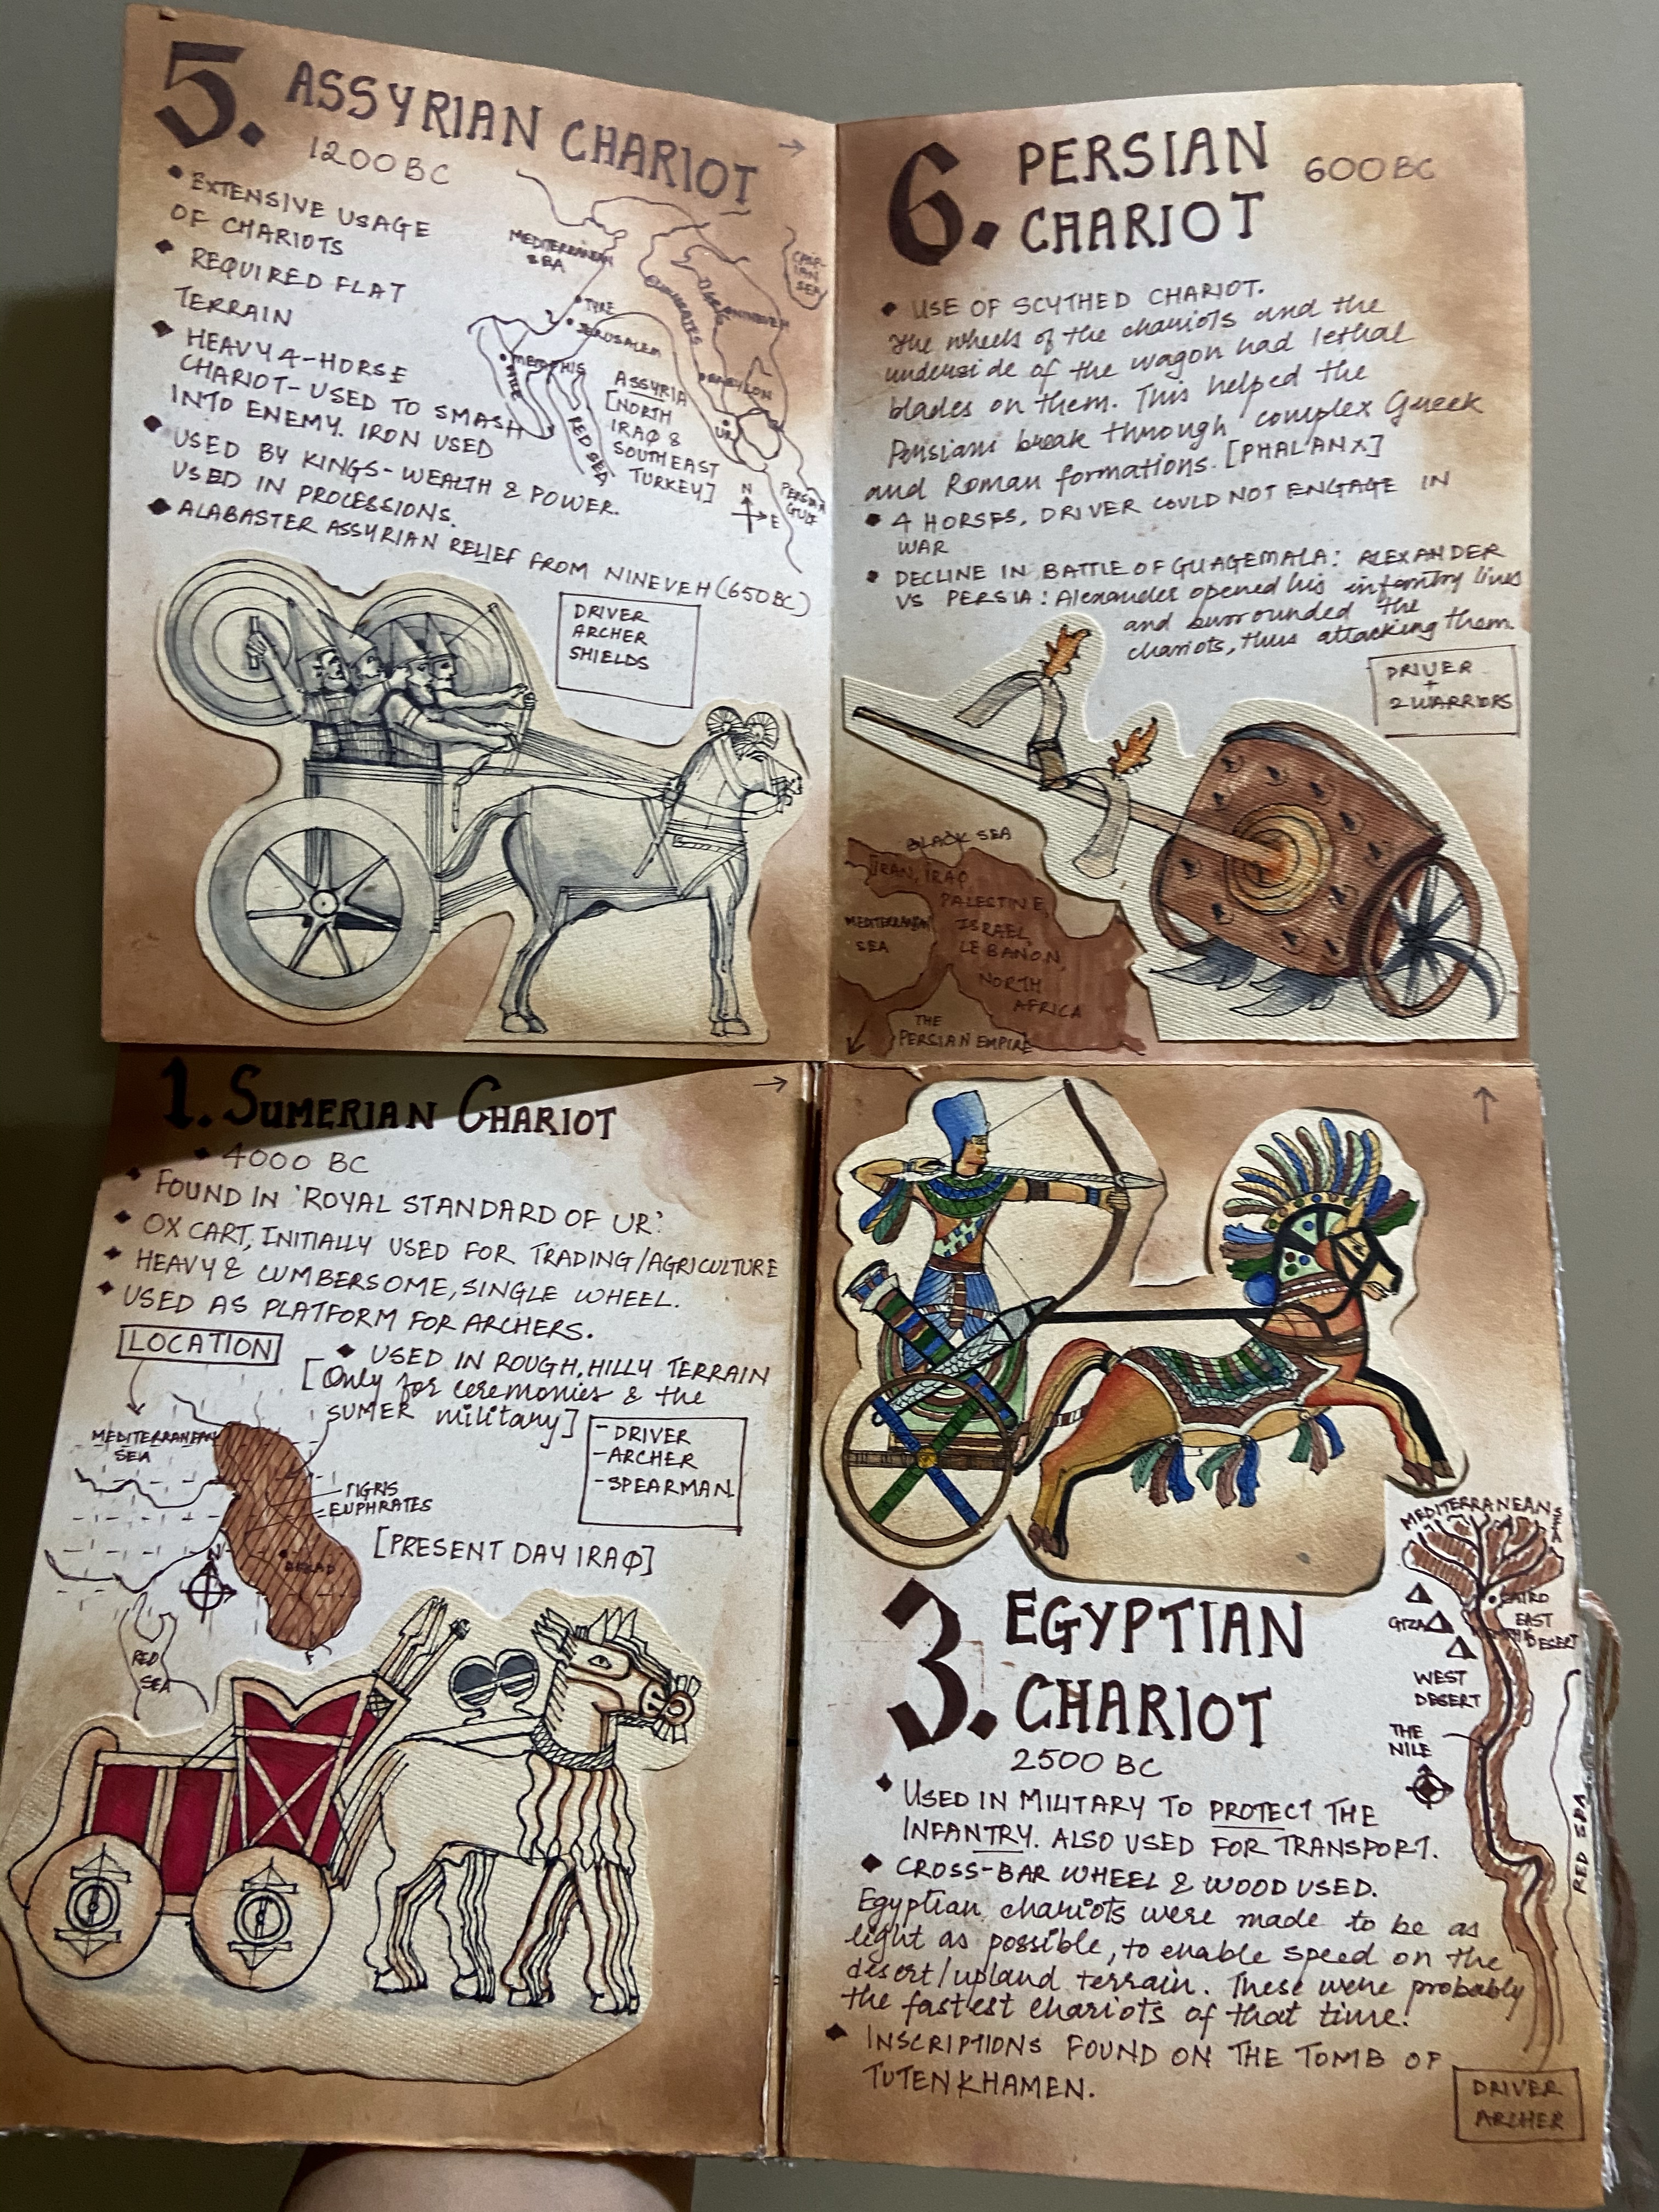 5. ASSYRIAN CHARIOT →
1200 BC
EXTENSIVE USAGE
OF CHARIOTS
REQUIRED FLAT
TERRAIN
HEAVY 4-HORSE
CHARIOT- USED TO SMASH
INTO ENEMY. IRON USED
USED BY KINGS- WEALTH & POWER.
USED IN PROCESSIONS.
ALABASTER ASSYRIAN RELIEF FROM NINEVEH (650BC)
MEDITERRANEAN
SEA
CASP-
IAN
SEA
TYRE
JERUSALEM
MEMPHIS
NILE
RED SEA
EUPHRATES
TIGRIS
NINEVEH
BABYLON
UR
ASSYRIA
[NORTH
IRAQ &
SOUTHEAST
TURKEY]
N
E
PERSIAN
GULF
DRIVER
ARCHER
SHIELDS
6. PERSIAN
CHARIOT
600BC
USE OF SCYTHED CHARIOT.
The wheels of the chariots and the
underside of the wagon had lethal
blades on them. This helped the
Persians break through complex Greek
and Roman formations. [PHALANX]
4 HORSES, DRIVER COULD NOT ENGAGE IN
WAR
DECLINE IN BATTLE OF GUAGEMALA: ALEXANDER
VS PERSIA: Alexander opened his infantry lines
and surrounded the
chariots, thus attacking them
DRIVER
+
2 WARRIORS
BLACK SEA
IRAN, IRAQ
PALESTINE,
ISRAEL,
LEBANON,
NORTH
AFRICA
MEDITERRANEAN
SEA
THE
PERSIAN EMPIRE
1. SUMERIAN CHARIOT →
4000 BC
FOUND IN 'ROYAL STANDARD OF UR'
OX CART, INITIALLY USED FOR TRADING/AGRICULTURE
HEAVY & CUMBERSOME, SINGLE WHEEL.
USED AS PLATFORM FOR ARCHERS.
LOCATION
USED IN ROUGH, HILLY TERRAIN
[Only for ceremonies & the
SUMER military]
MEDITERRANEAN
SEA
TIGRIS
EUPHRATES
[PRESENT DAY IRAQ]
N
RED
SEA
-DRIVER
-ARCHER
-SPEARMAN
↑
3. EGYPTIAN
CHARIOT
2500 BC
USED IN MILITARY TO PROTECT THE
INFANTRY. ALSO USED FOR TRANSPORT.
CROSS-BAR WHEEL & WOOD USED.
Egyptian chariots were made to be as
light as possible, to enable speed on the
desert/upland terrain. These were probably
the fastest chariots of that time!
INSCRIPTIONS FOUND ON THE TOMB OF
TUTENKHAMEN.
MEDITERRANEAN
SEA
CAIRO
GIZA
EAST
DESERT
WEST
DESERT
THE
NILE
RED SEA
DRIVER
ARCHER